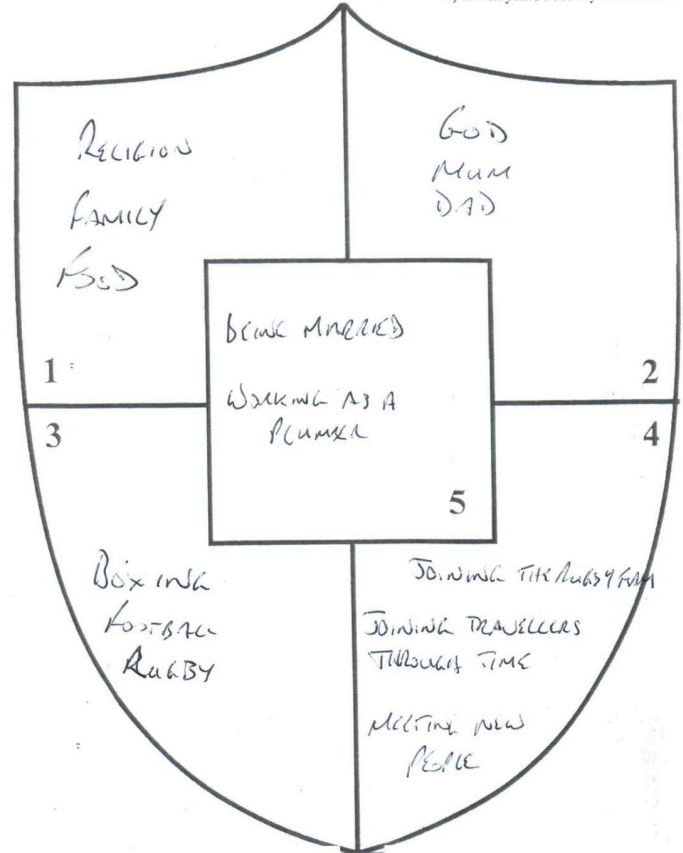 RELIGION
FAMILY
FOOD
1
GOD
MUM
DAD
2
BEING MARRIED
WORKING AS A
PLUMBER
5
3
BOXING
FOOTBALL
RUGBY
4
JOINING THE RUGBY
JOINING TRAVELLERS
THROUGH TIME
MEETING NEW
PEOPLE